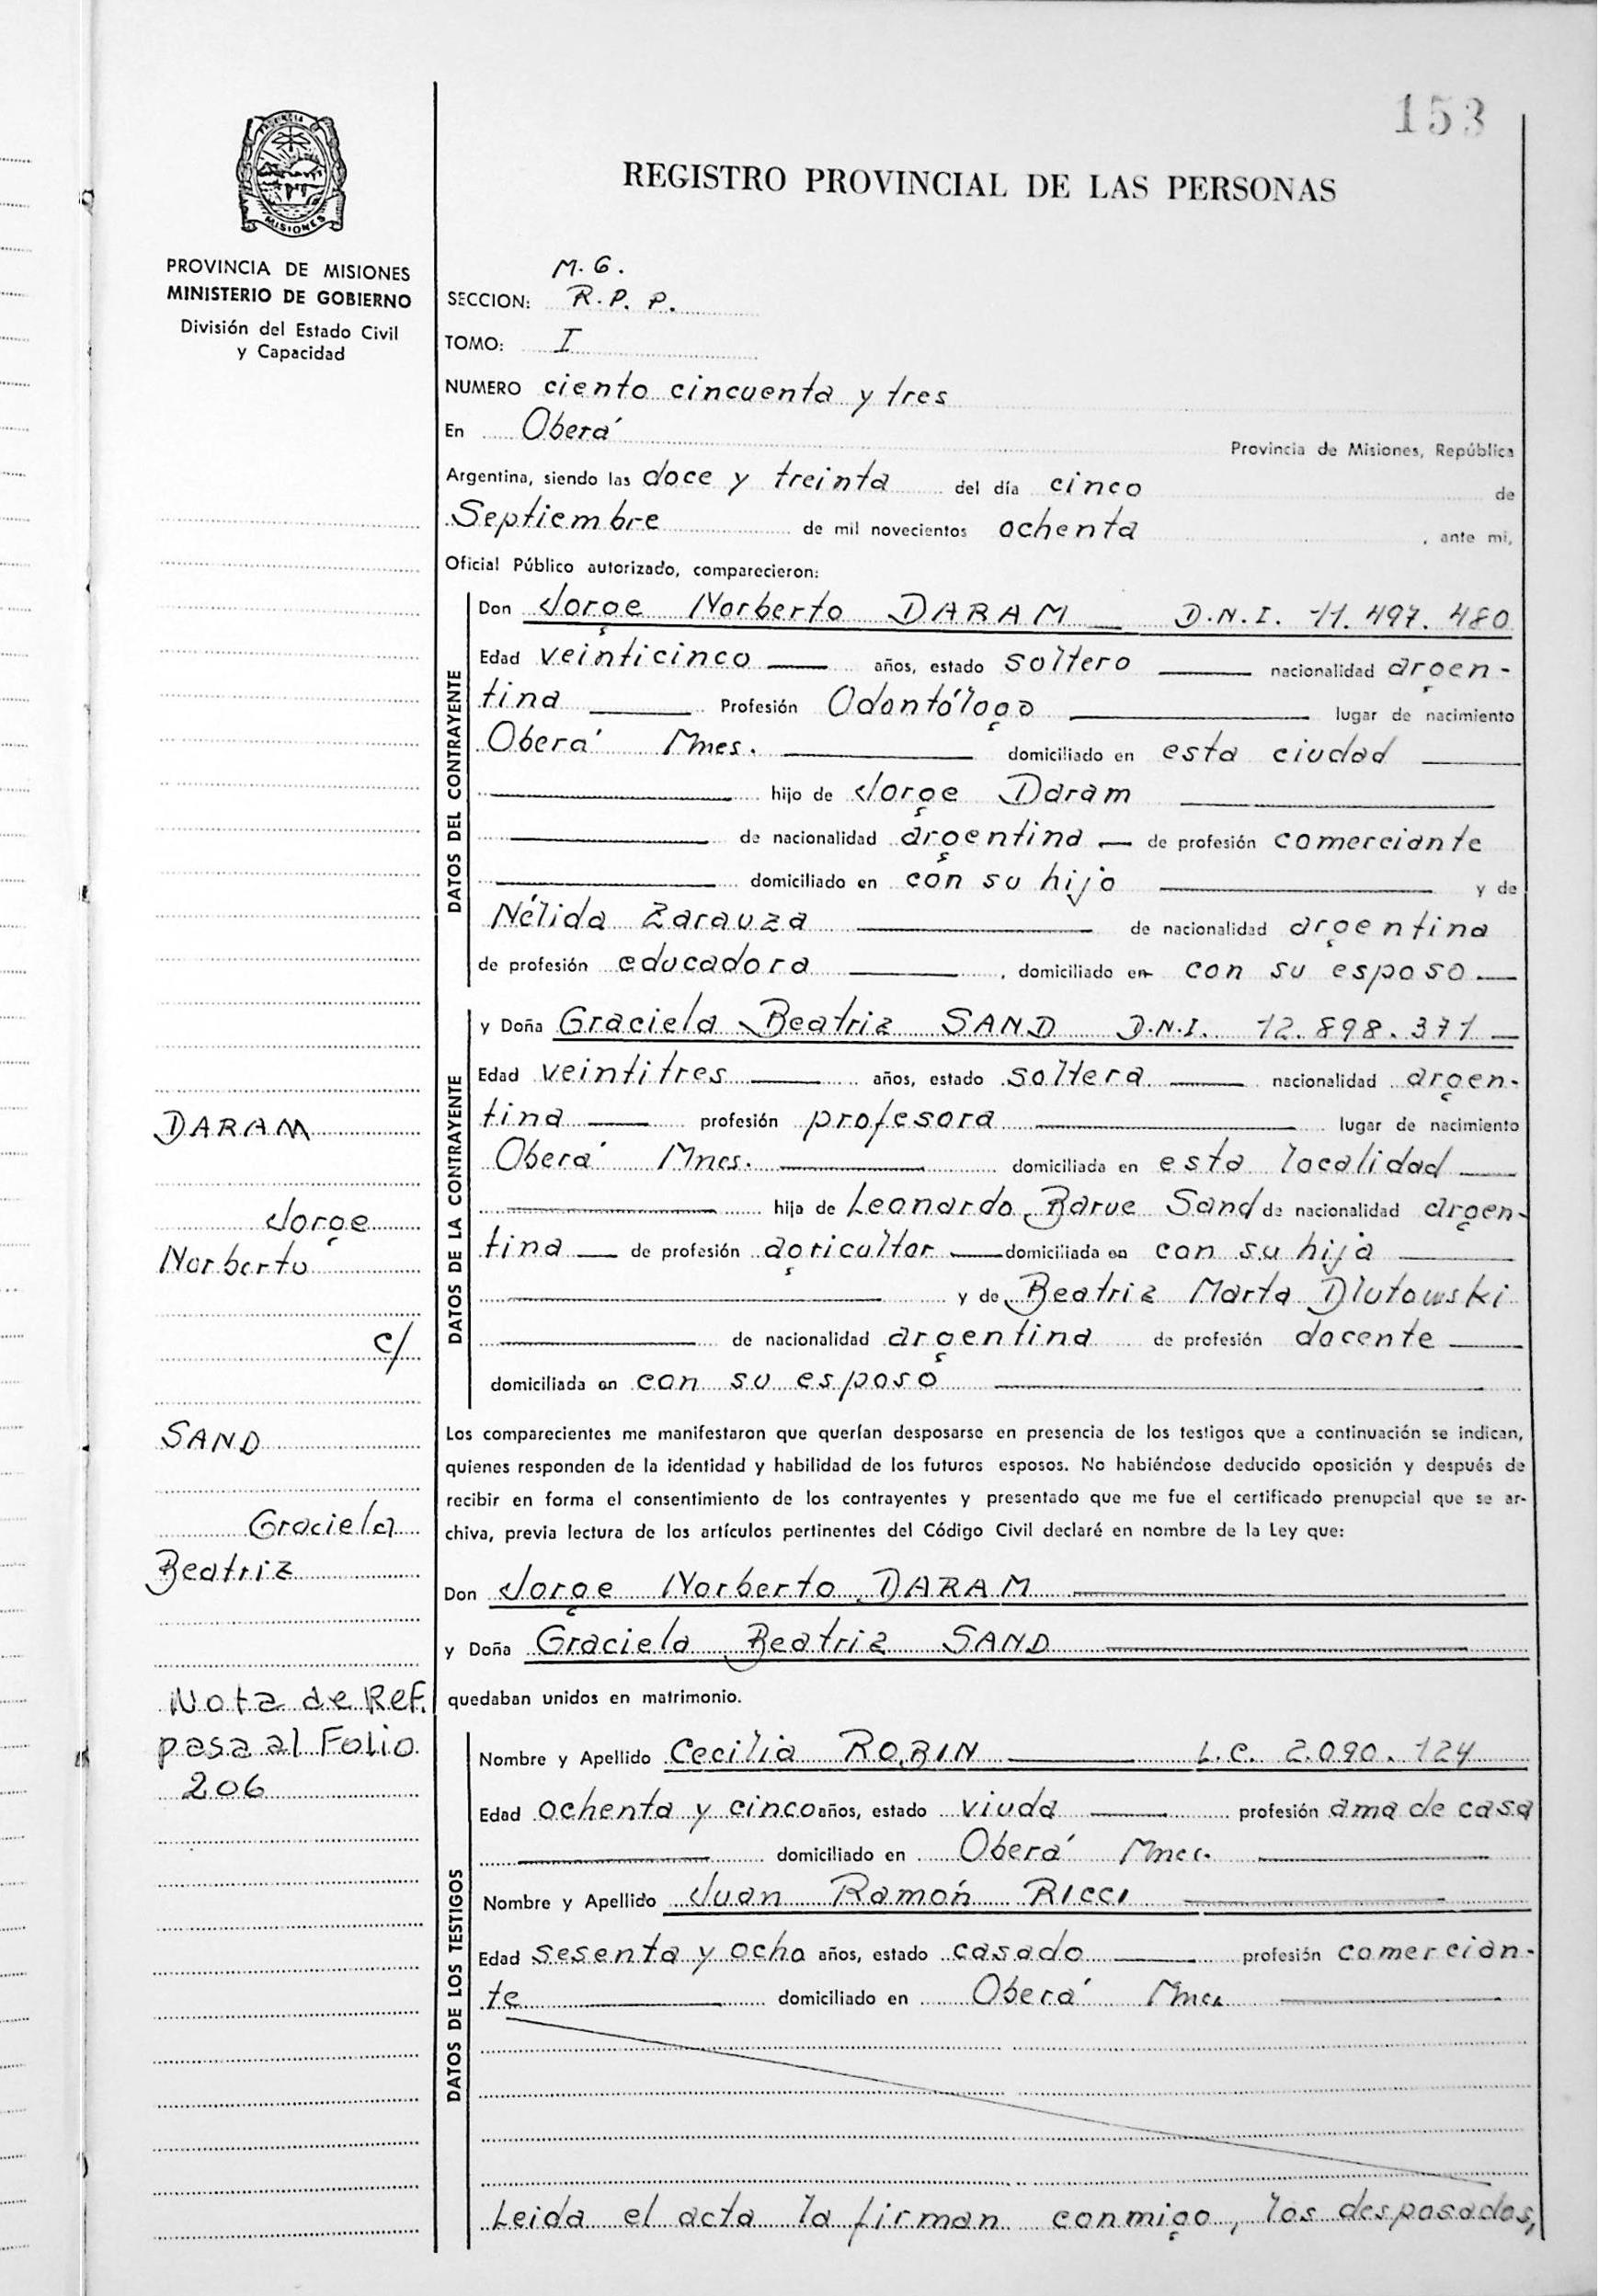 153
REGISTRO PROVINCIAL DE LAS PERSONAS
PROVINCIA
MISIONES
PROVINCIA DE MISIONES
MINISTERIO DE GOBIERNO
División del Estado Civil
y Capacidad
M. G.
SECCION: R. P. P.
TOMO: I
NUMERO ciento cincuenta y tres
En Oberá Provincia de Misiones, República
Argentina, siendo las doce y treinta del día cinco de
Septiembre de mil novecientos ochenta , ante mi,
Oficial Público autorizado, comparecieron:
DATOS DEL CONTRAYENTE
Don Jorge Norberto DARAM D.N.I. 11.497.480
Edad veinticinco años, estado soltero nacionalidad argen-
tina Profesión Odontólogo lugar de nacimiento
Oberá Mnes. domiciliado en esta ciudad
hijo de Jorge Daram
de nacionalidad argentina de profesión comerciante
domiciliado en con su hijo y de
Nélida Zarauza de nacionalidad argentina
de profesión educadora , domiciliado en con su esposo
DATOS DE LA CONTRAYENTE
y Doña Graciela Beatriz SAND D.N.I. 12.898.371
Edad veintitres años, estado soltera nacionalidad argen-
tina profesión profesora lugar de nacimiento
Oberá Mnes. domiciliada en esta localidad
hija de Leonardo Barue Sand de nacionalidad argen-
tina de profesión agricultor domiciliada en con su hija
y de Beatriz Marta Dlutowski
de nacionalidad argentina de profesión docente
domiciliada en con su esposo
Los comparecientes me manifestaron que querían desposarse en presencia de los testigos que a continuación se indican,
quienes responden de la identidad y habilidad de los futuros esposos. No habiéndose deducido oposición y después de
recibir en forma el consentimiento de los contrayentes y presentado que me fue el certificado prenupcial que se ar-
chiva, previa lectura de los artículos pertinentes del Código Civil declaré en nombre de la Ley que:
Don Jorge Norberto DARAM
y Doña Graciela Beatriz SAND
quedaban unidos en matrimonio.
DATOS DE LOS TESTIGOS
Nombre y Apellido Cecilia ROBIN L.C. 2.090.124
Edad ochenta y cinco años, estado viuda profesión ama de casa
domiciliado en Oberá Mnes.
Nombre y Apellido Juan Ramón RICCI
Edad sesenta y ocho años, estado casado profesión comercian-
te domiciliado en Oberá Mnes
Leida el acta la firman conmigo, los desposados,
DARAM
Jorge
Norberto
c/
SAND
Graciela
Beatriz
Nota de Ref.
pasa al Folio
206